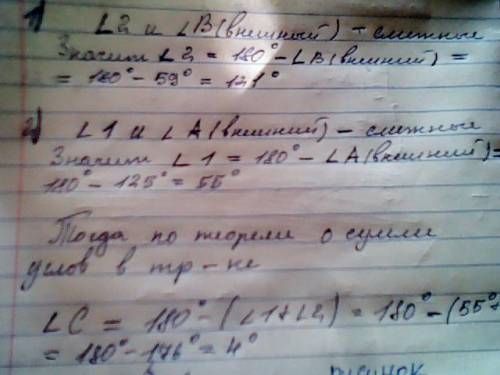 1) ∠2 и ∠B(внешный) - смежные
Значит ∠2 = 180° - ∠B(внешний) =
= 180° - 59° = 121°
2) ∠1 и ∠A(внешний) - смежные
Значит ∠1 = 180° - ∠A(внешний)=
180° - 125° = 55°
Тогда по теореме о сумме
углов в тр-ке
∠C = 180° - (∠1+∠2) = 180° - (55°+
= 180° - 176° = 4°
рисунок